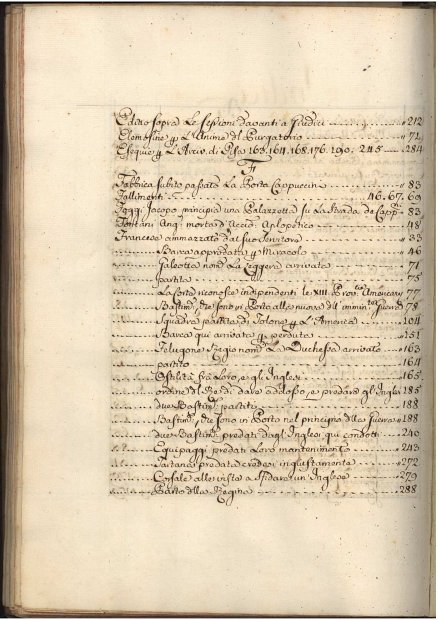 Editto sopra Le Sessioni davanti a Giudici ..... 212
Elemosine p L'Anime del Purgatorio ..... 71
Esequie p L'Arciv. di Pisa 163. 164. 168. 176. 190. 245 ..... 284
F
Fabbrica subito passato La Porta Cappuccin ..... 83
Fallimenti ..... 46. 67. 69
Foggi Jacopo principia una Palazzetta su La Strada de Capp.ni 83
Fontani Ang. morto d'Accid. Aplopetico ..... 48
Francese ammazzato dal suo Servitore ..... 33
Barca approdata p Miracolo ..... 46
Galeotta nom. La Leggera arrivata ..... 71
partita ..... 75
La Corte riconosce indipendenti le XIII Prov. Americane 77
Bastim. che sono in Porto alla nuova dell' 78
Squadra partita di Tolone p L'America ..... 104
Barca qui arrivata e perduta ..... 151
Felugone Regio nom. La Duchessa arrivato ..... 163
partito ..... 164
Ostilità fra Loro, e gl' Inglesi
ordine del Re di dare addosso, e predare gl' Inglesi 185
due Bastim. partiti ..... 188
Bastim. che sono in Porto nel principio della Guerra 188
due Bastim. predati dagl Inglesi qui condotti ..... 240
Equipaggi predati Loro mantenimento ..... 243
Tartana predata credesi ingiustamente ..... 272
Corsale alla vista a sfidare un Inglese ..... 279
Parto della Regina ..... 288